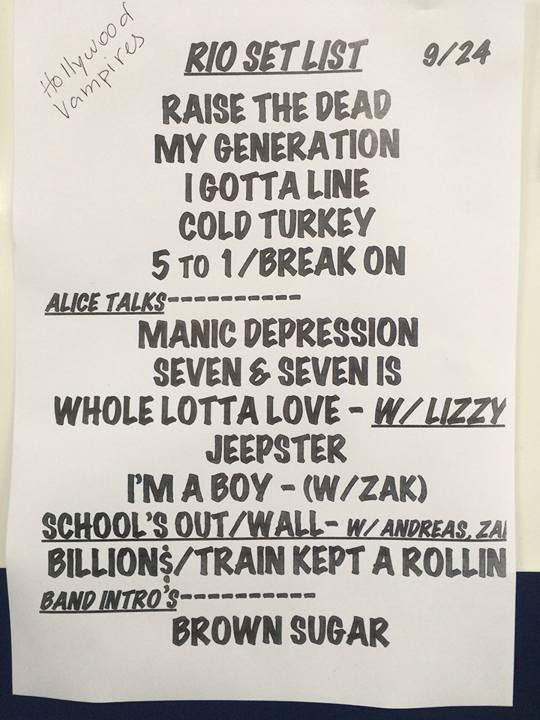 Hollywood
Vampires
RIO SET LIST 9/24
RAISE THE DEAD
MY GENERATION
I GOTTA LINE
COLD TURKEY
5 TO 1/BREAK ON
ALICE TALKS----------
MANIC DEPRESSION
SEVEN & SEVEN IS
WHOLE LOTTA LOVE - W/ LIZZY
JEEPSTER
I'M A BOY - (W/ZAK)
SCHOOL'S OUT/WALL- W/ ANDREAS, ZA
BILLION$/TRAIN KEPT A ROLLIN
BAND INTRO'S----------
BROWN SUGAR